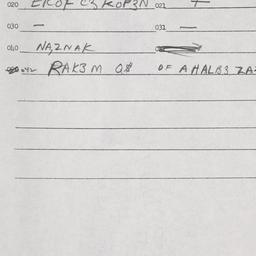 020 EKOF C3 KOP3N 021 +
030 – 031 –
040 NA,2NAK
042 RAK3M O,8 OF AHALB3 ZA